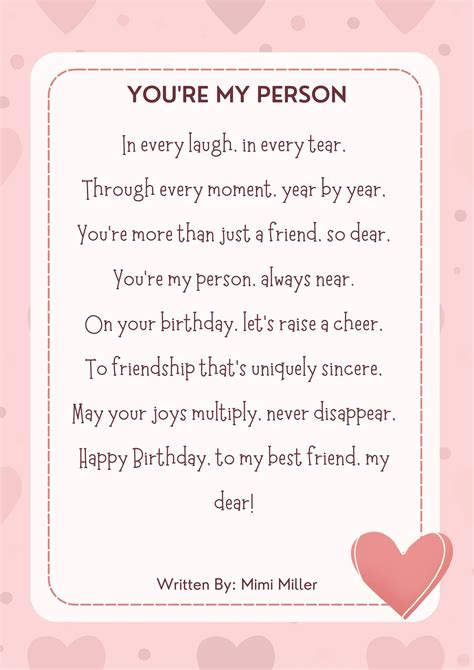 YOU'RE MY PERSON
In every laugh, in every tear,
Through every moment, year by year,
You're more than just a friend, so dear,
You're my person, always near.
On your birthday, let's raise a cheer,
To friendship that's uniquely sincere,
May your joys multiply, never disappear,
Happy Birthday, to my best friend, my
dear!
Written By: Mimi Miller